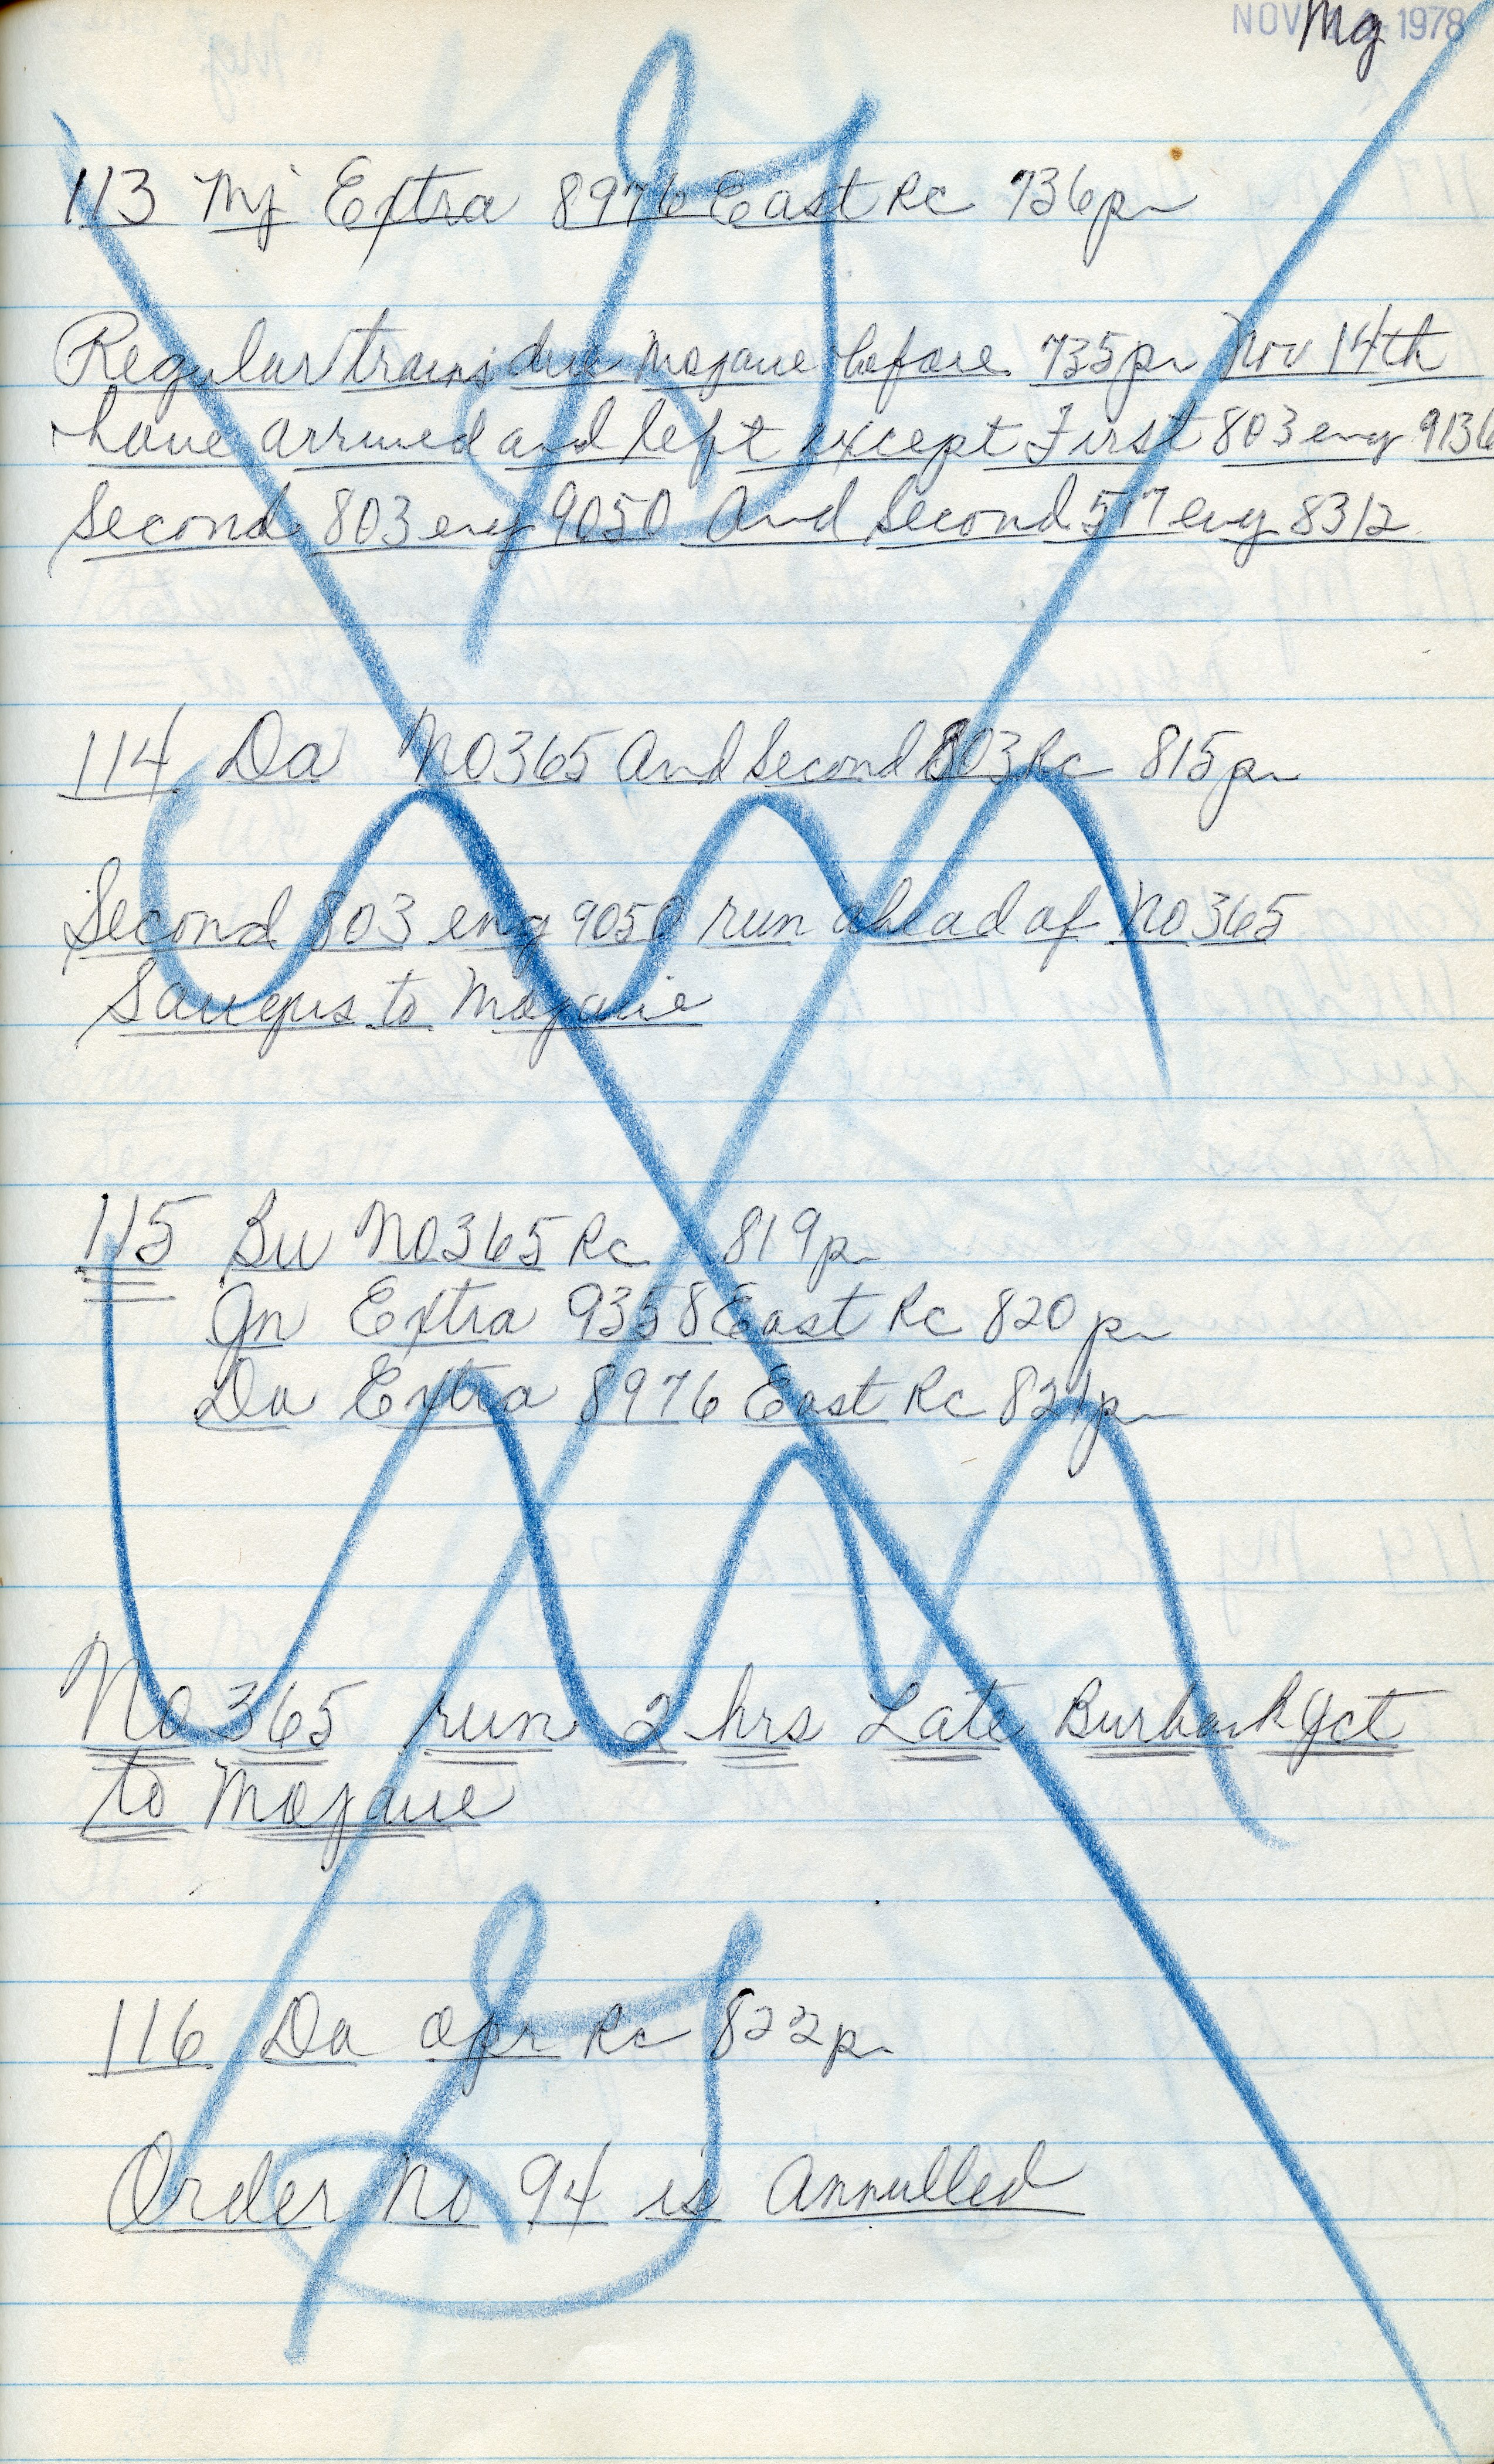 NOV 1978
Mg
113 Mj Extra 8976 East Rc 736pm
Regular trains due Mojave before 735pm Nov 14th
have arrived and left except First 803 eng 9136
Second 803 eng 9050 And Second 517 eng 8312
114 Da No 365 And Second 803 Rc 815pm
Second 803 eng 9050 run ahead of No 365
Saugus to Mojave
115 Bu No 365 Rc 819pm
Jn Extra 9358 East Rc 820pm
Da Extra 8976 East Rc 821pm
No 365 run 2 hrs Late Burbank Jct
to Mojave
116 Da Opr Rc 822pm
Order No 94 is Annulled